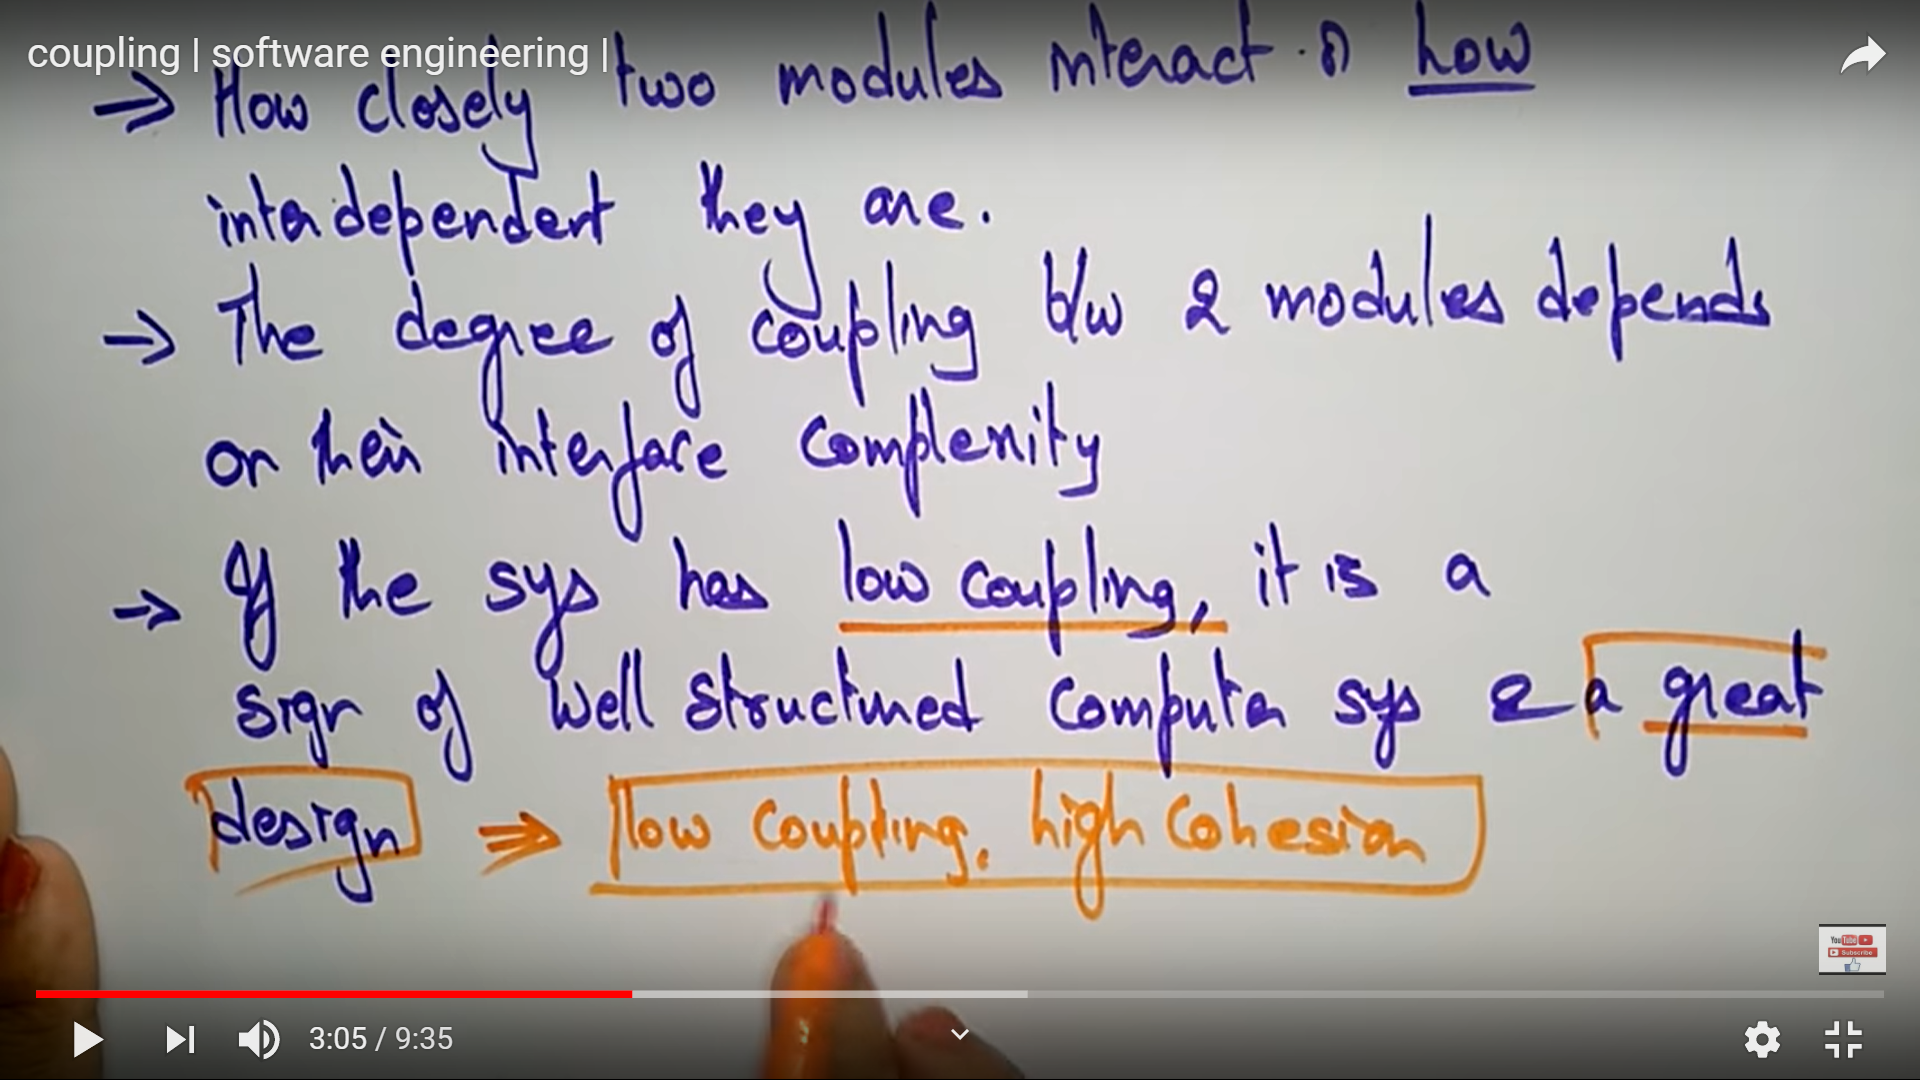 coupling | software engineering |
⇒ How closely two modules interact or how
interdependent they are.
→ The degree of coupling b/w 2 modules depends
on their interface complexity
→ If the sys has low coupling, it is a
sign of well structured computer sys & a great
design ⇒ low coupling, high cohesion
YouTube
Subscribe
3:05 / 9:35